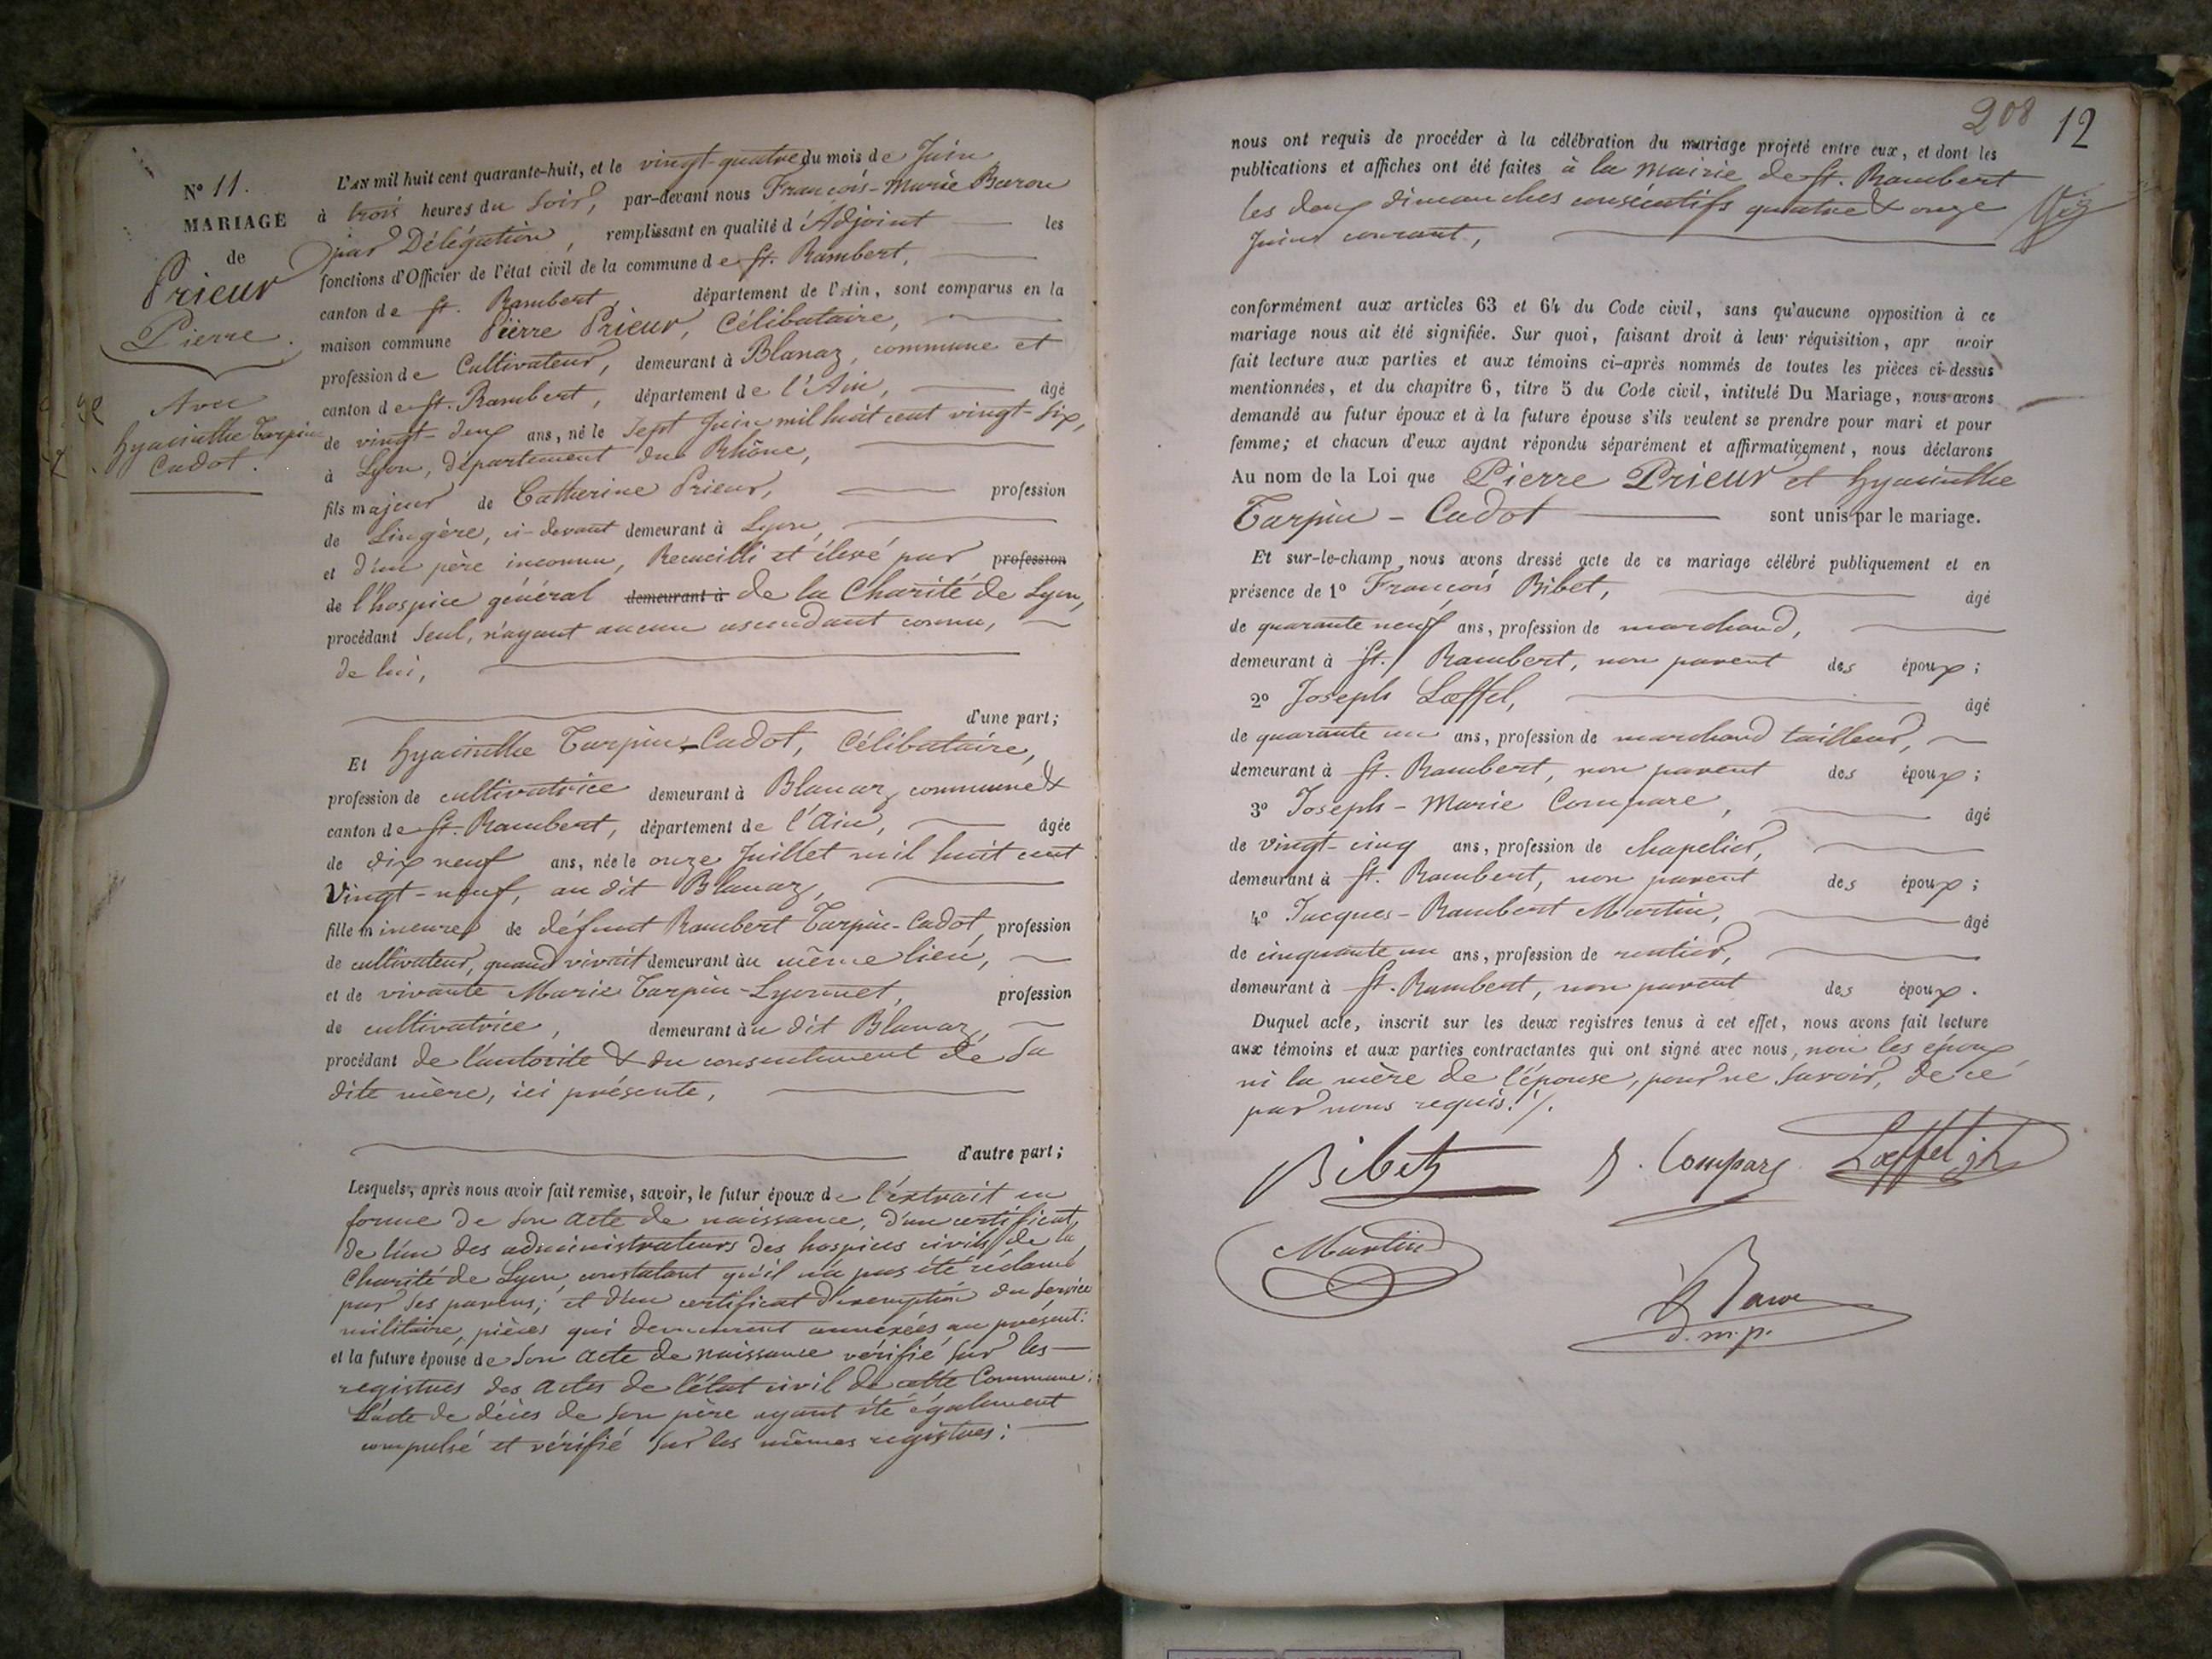 N° 11.
MARIAGE
de
Prieur
Pierre.
Avec
hyacinthe Tarpin
Cadot.
L'AN mil huit cent quarante-huit, et le vingt-quatre du mois de Juin
à trois heures du soir, par-devant nous François-Marie Baron
par Délégation, remplissant en qualité d'Adjoint les
fonctions d'Officier de l'état civil de la commune de St. Rambert,
canton de St. Rambert, département de l'Ain, sont comparus en la
maison commune Pierre Prieur, Célibataire,
profession de Cultivateur, demeurant à Blanaz, commune et
canton de St. Rambert, département de l'Ain, âgé
de vingt-deux ans, né le Sept Juin mil huit cent vingt-six,
à Lyon, département du Rhône,
fils majeur de Catherine Prieur, profession
de Lingère, ci-devant demeurant à Lyon,
et d'un père inconnu, Recueilli et élevé par profession
de l'hospice général demeurant à de la Charité de Lyon,
procédant seul, n'ayant aucun ascendant connu,
de lui,
d'une part;
Et hyacinthe Tarpin-Cadot, Célibataire,
profession de cultivatrice demeurant à Blanaz, commune &
canton de St. Rambert, département de l'Ain, âgée
de dix neuf ans, née le onze Juillet mil huit cent
Vingt-neuf, au dit Blanaz,
fille mineure de défunt Rambert Tarpin-Cadot, profession
de cultivateur, quand vivait demeurant àu même lieu,
et de vivante Marie Tarpin-Lyonnet, profession
de cultivatrice, demeurant àu dit Blanaz,
procédant de l'autorité & du consentement de sa
dite mère, ici présente,
d'autre part;
Lesquels, après nous avoir fait remise, savoir, le futur époux de l'extrait en
forme de son acte de naissance, d'un certificat
de l'un des administrateurs des hospices civils de la
Charité de Lyon, constatant qu'il n'a pas été réclamé
par ses parens; et d'un certificat d'exemption du service
militaire, pièces qui demeurent annexées au présent:
et la future épouse de son acte de naissance vérifié sur les
registres des actes de l'état civil de cette Commune:
L'acte de décès de son père ayant été également
compulsé et vérifié sur les mêmes registres:
208 12
nous ont requis de procéder à la célébration du mariage projeté entre eux, et dont les
publications et affiches ont été faites à la Mairie de St. Rambert
les deux dimanches consécutifs quatre & onze
Juin courant,
conformément aux articles 63 et 64 du Code civil, sans qu'aucune opposition à ce
mariage nous ait été signifiée. Sur quoi, faisant droit à leur réquisition, apr avoir
fait lecture aux parties et aux témoins ci-après nommés de toutes les pièces ci-dessus
mentionnées, et du chapitre 6, titre 5 du Code civil, intitulé Du Mariage, nous avons
demandé au futur époux et à la future épouse s'ils veulent se prendre pour mari et pour
femme; et chacun d'eux ayant répondu séparément et affirmativement, nous déclarons
Au nom de la Loi que Pierre Prieur et hyacinthe
Tarpin-Cadot sont unis par le mariage.
Et sur-le-champ nous avons dressé acte de ce mariage célébré publiquement et en
présence de 1° François Bibet, âgé
de quarante neuf ans, profession de marchand,
demeurant à St. Rambert, non parent des époux;
2° Joseph Lœffel, âgé
de quarante un ans, profession de marchand tailleur,
demeurant à St. Rambert, non parent des époux;
3° Joseph-Marie Compare, âgé
de vingt-cinq ans, profession de chapelier,
demeurant à St. Rambert, non parent des époux;
4° Jacques-Rambert Martin, âgé
de cinquante un ans, profession de rentier,
demeurant à St. Rambert, non parent des époux.
Duquel acte, inscrit sur les deux registres tenus à cet effet, nous avons fait lecture
aux témoins et aux parties contractantes qui ont signé avec nous, non les époux
ni la mère de l'épouse, pour ne savoir, de ce
par nous requis./.
Bibet J. Compare Lœffel
Martin
Baron
d. m. p.